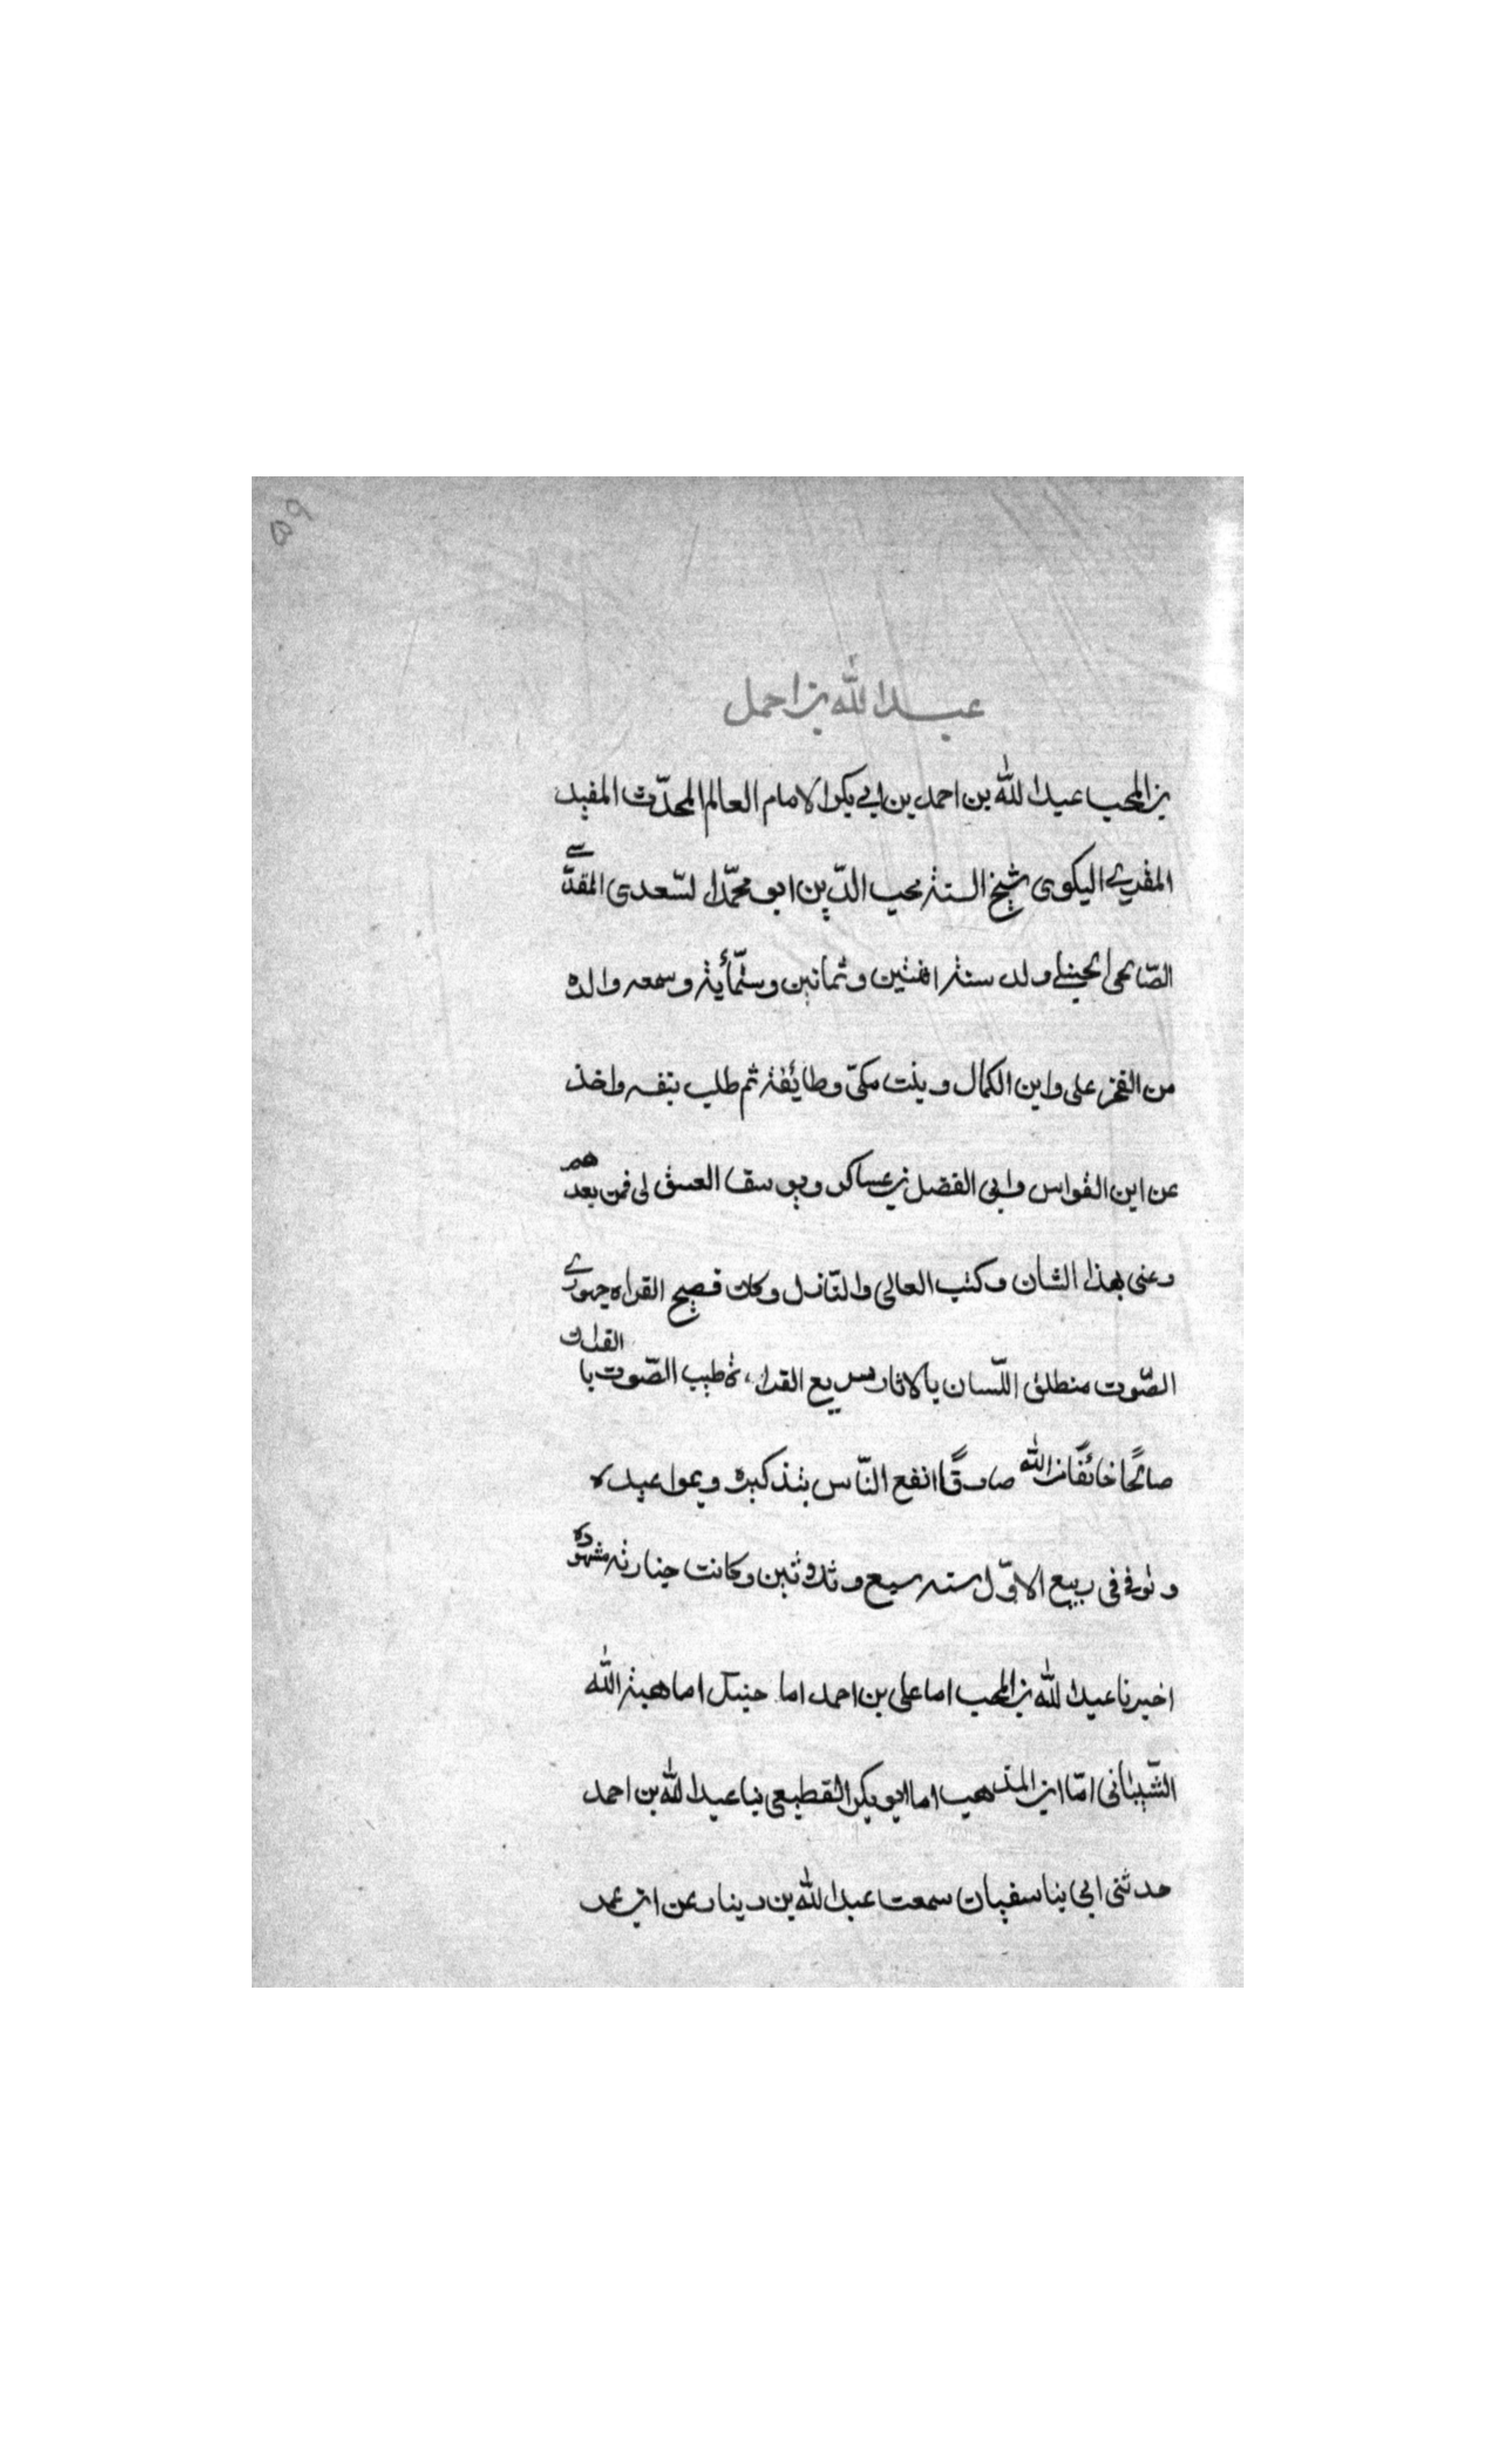 ٥٩
عبد الله بن احمد
بن المحب عبد الله بن احمد بن ابي بكر الامام العالم المحدّث المفيد
المقري اليكوى شيخ السنة محب الدّين ابو محمّد السّعدى المقدّسے
الصّالحى الحنبلے ولد سنة اثنتين وثمانين وستّمأية وسمعه والده
من الفخر على وابن الكمال وبنت مكىّ وطائفة ثم طلب بنفسه واخذ
عن ابن القواس وابى الفضل بن عساكر ويوسف العسقلى فمن بعدهم
وعنى بهذا الشان وكتب العالى والنّازل وكان فصيح القراه جهورے
الصّوت منطلق اللّسان بالاثار سريع القراءة طيب الصّوت بالقران
صالحًا خائفًا من الله صادقًا انفع النّاس بتذكيره وبمواعيده
وتوفے فى ربيع الاوّل سنه سبع وثلاثين وكانت جنازته مشهودة
اخبرنا عبد الله بن المحب اما على بن احمد اما حنبل اما هبة الله
الشّيبانى امّا ابن المذهب اما ابو بكر القطيعى نبا عبد الله بن احمد
حدثنى ابى نبا سفيان سمعت عبد الله بن دينار عن ابن عمر